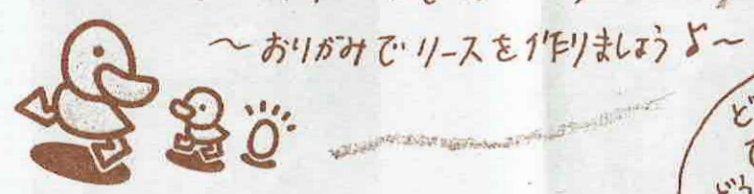 〜おりがみでリースを作りましょう♪〜
ど